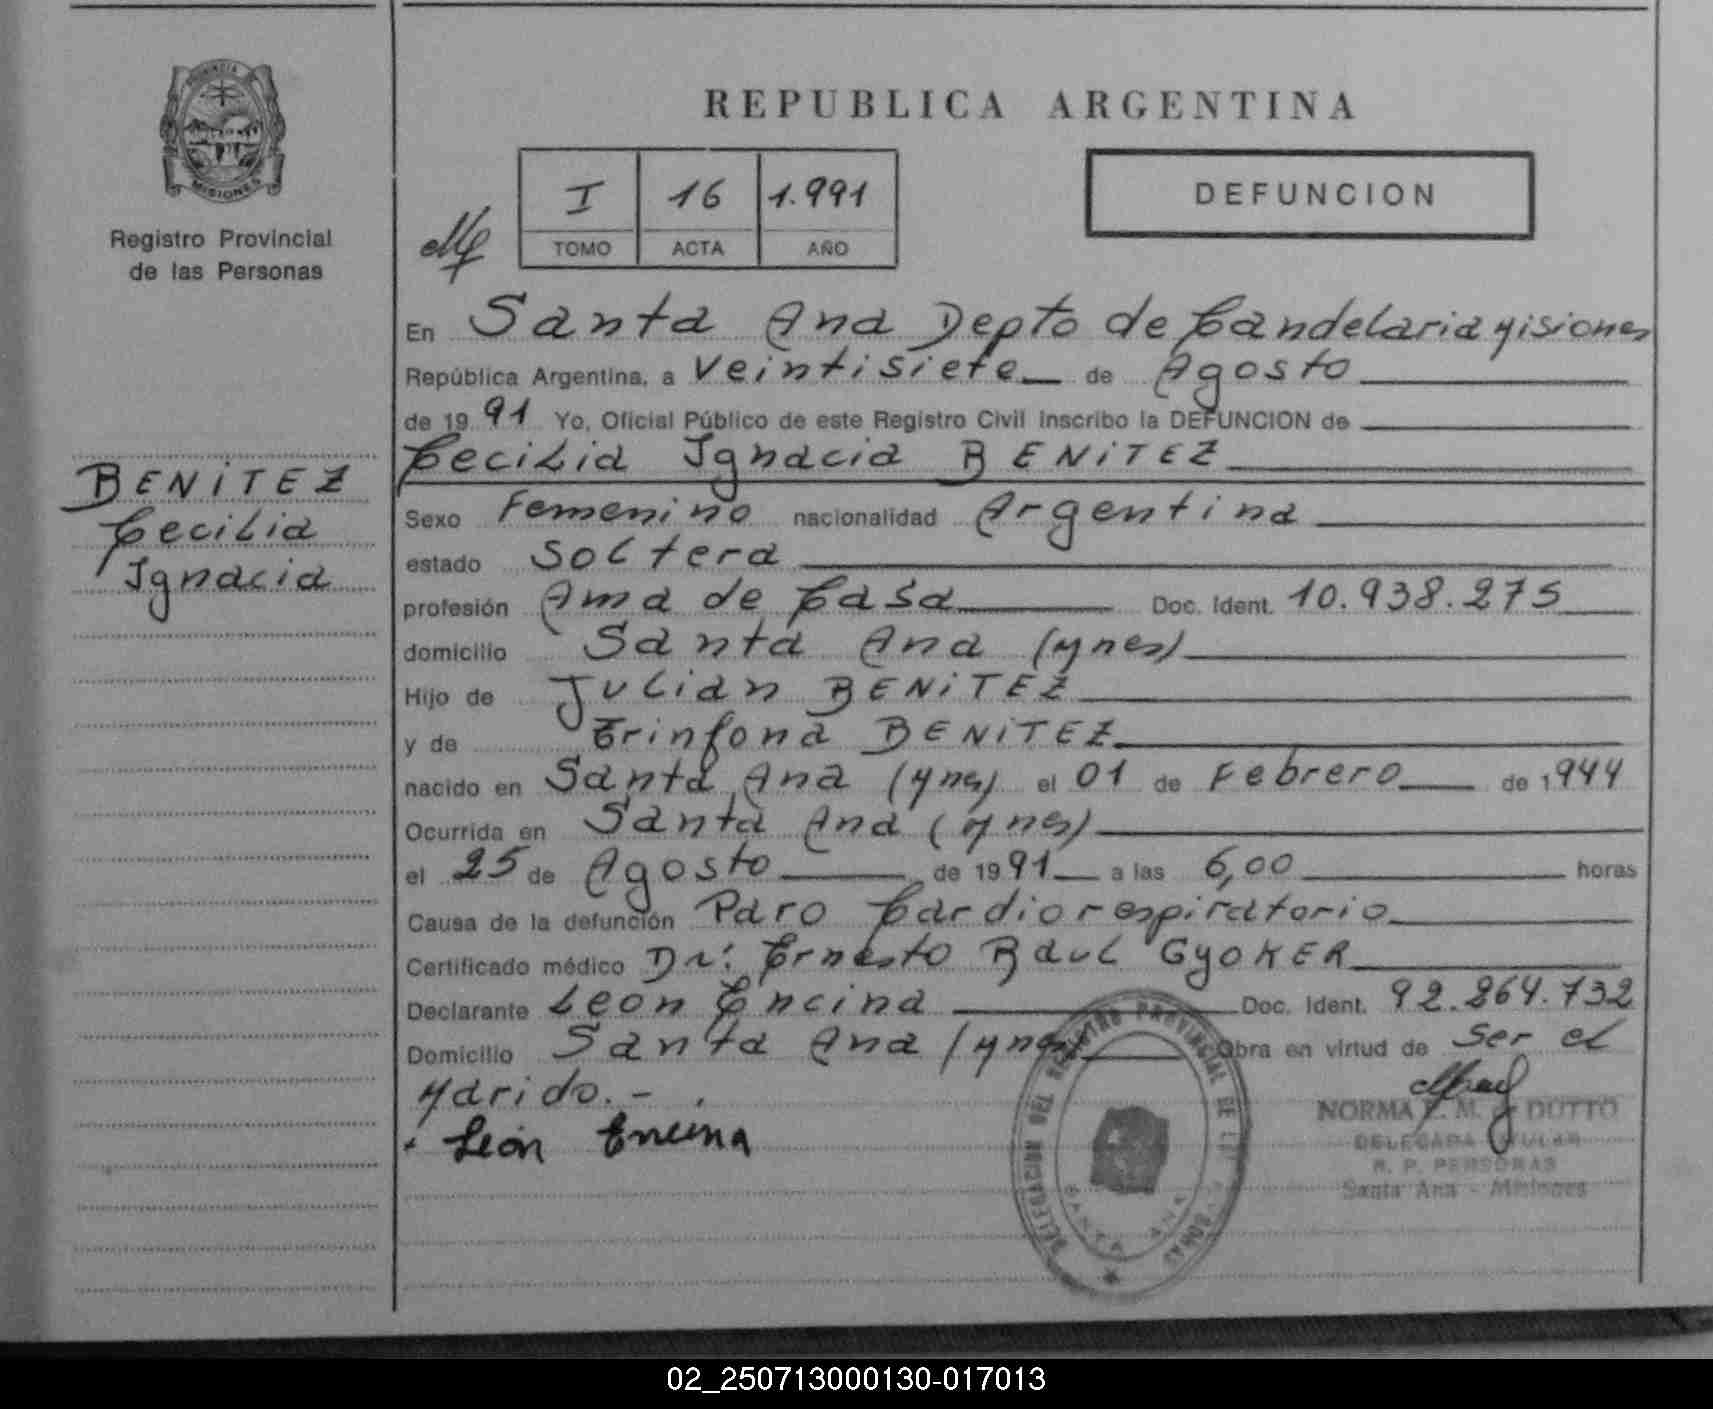 PROVINCIA
MISIONES
Registro Provincial
de las Personas
BENITEZ
Cecilia
Ignacia
REPUBLICA ARGENTINA
I 16 1.991
TOMO ACTA AÑO
DEFUNCION
En Santa Ana Depto de Candelaria Misiones
República Argentina, a Veintisiete de Agosto
de 1991 Yo, Oficial Público de este Registro Civil Inscribo la DEFUNCION de
Cecilia Ignacia BENITEZ
Sexo Femenino nacionalidad Argentina
estado Soltera
profesión Ama de Casa Doc. Ident. 10.938.275
domicilio Santa Ana (Mnes)
Hijo de Julian BENITEZ
y de Trinfona BENITEZ
nacido en Santa Ana (Mnes) el 01 de Febrero de 1944
Ocurrida en Santa Ana (Mnes)
el 25 de Agosto de 1991 a las 6,00 horas
Causa de la defunción Paro Cardiorespiratorio
Certificado médico Dr: Ernesto Raul GYOKER
Declarante Leon Encina Doc. Ident. 92.264.732
Domicilio Santa Ana (Mnes) Obra en virtud de Ser el
Marido.-
León Encina
DELEGACION DEL REGISTRO PROVINCIAL DE
SANTA ANA
NORMA M. DUTTO
DELEGADA TITULAR
R. P. PERSONAS
Santa Ana - Misiones
02_250713000130-017013